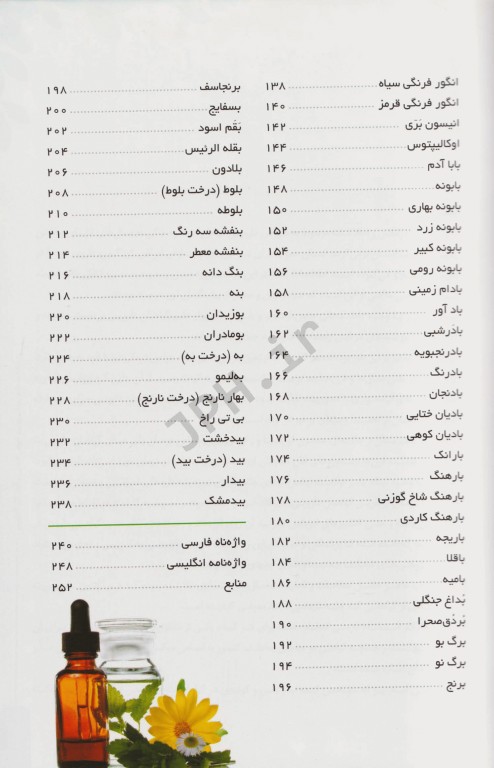 انگور فرنگی سیاه ۱۳۸
انگور فرنگی قرمز ۱۴۰
انیسون بَرَی ۱۴۲
اوکالیپتوس ۱۴۴
بابا آدم ۱۴۶
بابونه ۱۴۸
بابونه بهاری ۱۵۰
بابونه زرد ۱۵۲
بابونه کبیر ۱۵۴
بابونه رومی ۱۵۶
بادام زمینی ۱۵۸
باد آور ۱۶۰
بادَرشبی ۱۶۲
بادرنجبویه ۱۶۴
بادرنگ ۱۶۶
بادنجان ۱۶۸
بادیان ختایی ۱۷۰
بادیان کوهی ۱۷۲
بارانک ۱۷۴
بارهنگ ۱۷۶
بارهنگ شاخ گوزنی ۱۷۸
بارهنگ کاردی ۱۸۰
باریجه ۱۸۲
باقلا ۱۸۴
بامیه ۱۸۶
بُداغ جنگلی ۱۸۸
بَردَق‌صحرا ۱۹۰
برگ بو ۱۹۲
برگ نو ۱۹۴
برنج ۱۹۶
برنجاسف ۱۹۸
بسفایج ۲۰۰
بَقَم اسود ۲۰۲
بقله الرئیس ۲۰۴
بلادون ۲۰۶
بلوط (درخت بلوط) ۲۰۸
بلوطه ۲۱۰
بنفشه سه رنگ ۲۱۲
بنفشه معطر ۲۱۴
بنگ دانه ۲۱۶
بنه ۲۱۸
بوزیدان ۲۲۰
بومادران ۲۲۲
به (درخت به) ۲۲۴
به‌لیمو ۲۲۶
بهار نارنج (درخت نارنج) ۲۲۸
بی تی راخ ۲۳۰
بیدخشت ۲۳۲
بید (درخت بید) ۲۳۴
بیدار ۲۳۶
بیدمشک ۲۳۸
واژه‌ناه فارسی ۲۴۰
واژه‌نامه انگلیسی ۲۴۸
منابع ۲۵۲
JPH.ir